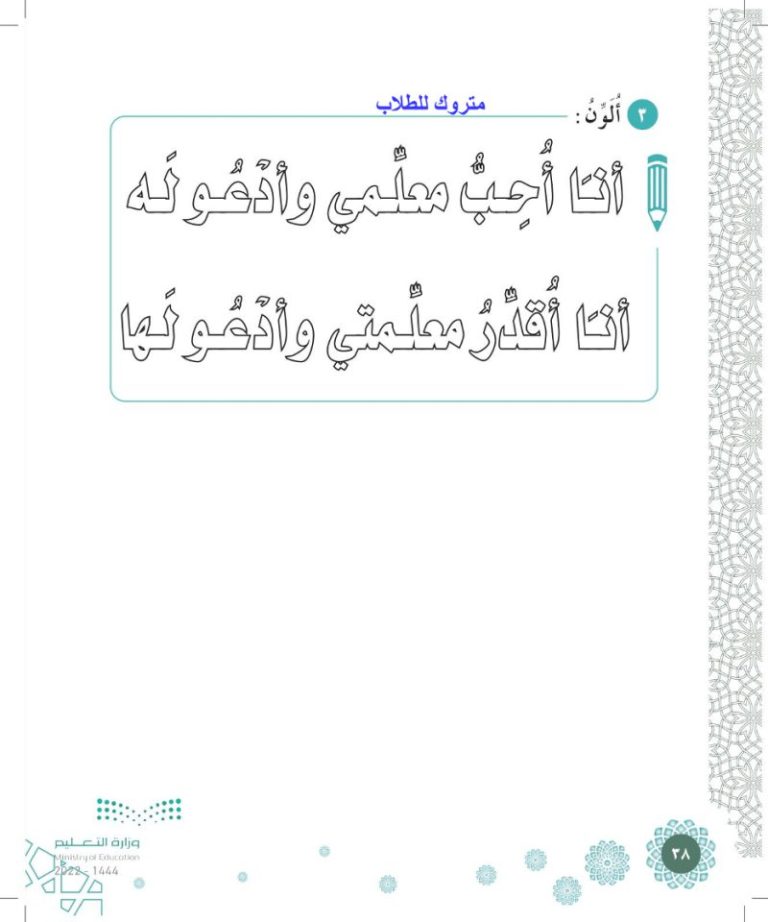 متروك للطلاب
٣ أُلَوِّنُ :
أنَا أُحِبُّ معلِّمي وأدْعُو لَه
أنَا أُقدِّرُ معلِّمتي وأدْعُو لَها
وزارة التعـليم
Ministry of Education
2022 - 1444
٣٨